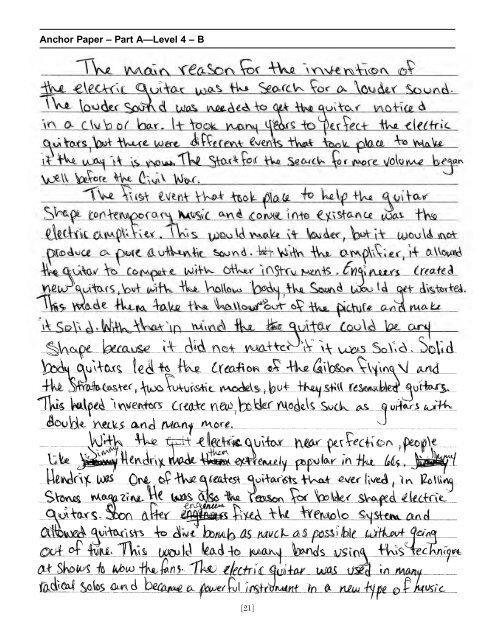 Anchor Paper – Part A—Level 4 – B
The main reason for the invention of
the electric guitar was the search for a louder sound.
The louder sound was needed to get the guitar noticed
in a club or bar. It took many years to perfect the electric
guitars, but there were different events that took place to make
it the way it is now. The start for the search for more volume began
well before the Civil War.
The first event that took place to help the guitar
shape contemporary music and come into existance was the
electric amplifier. This would make it louder, but it would not
produce a pure authentic sound. With the amplifier, it allowed
the guitar to compete with other instruments. Engineers created
new guitars, but with the hollow body, the sound would get distorted.
This made them take the hallowness out of the picture and make
it solid. With that in mind the guitar could be any
shape because it did not matter if it was solid. Solid
body guitars led to the creation of the Gibson Flying V and
the Stratocaster, two futuristic models, but they still resembled guitars.
This helped inventors create new, bolder models such as guitars with
double necks and many more.
With the electric guitar near perfection, people
like Hendrix made them extremely popular in the 60s.
Hendrix was one of the greatest guitarists that ever lived, in Rolling
Stones magazine. He was also the reason for bolder shaped electric
guitars. Soon after engineers fixed the tremolo system and
allowed guitarists to dive bomb as much as possible without going
out of tune. This would lead to many bands using this technique
at shows to wow the fans. The electric guitar was used in many
radical solos and became a powerful instrument in a new type of music
[21]